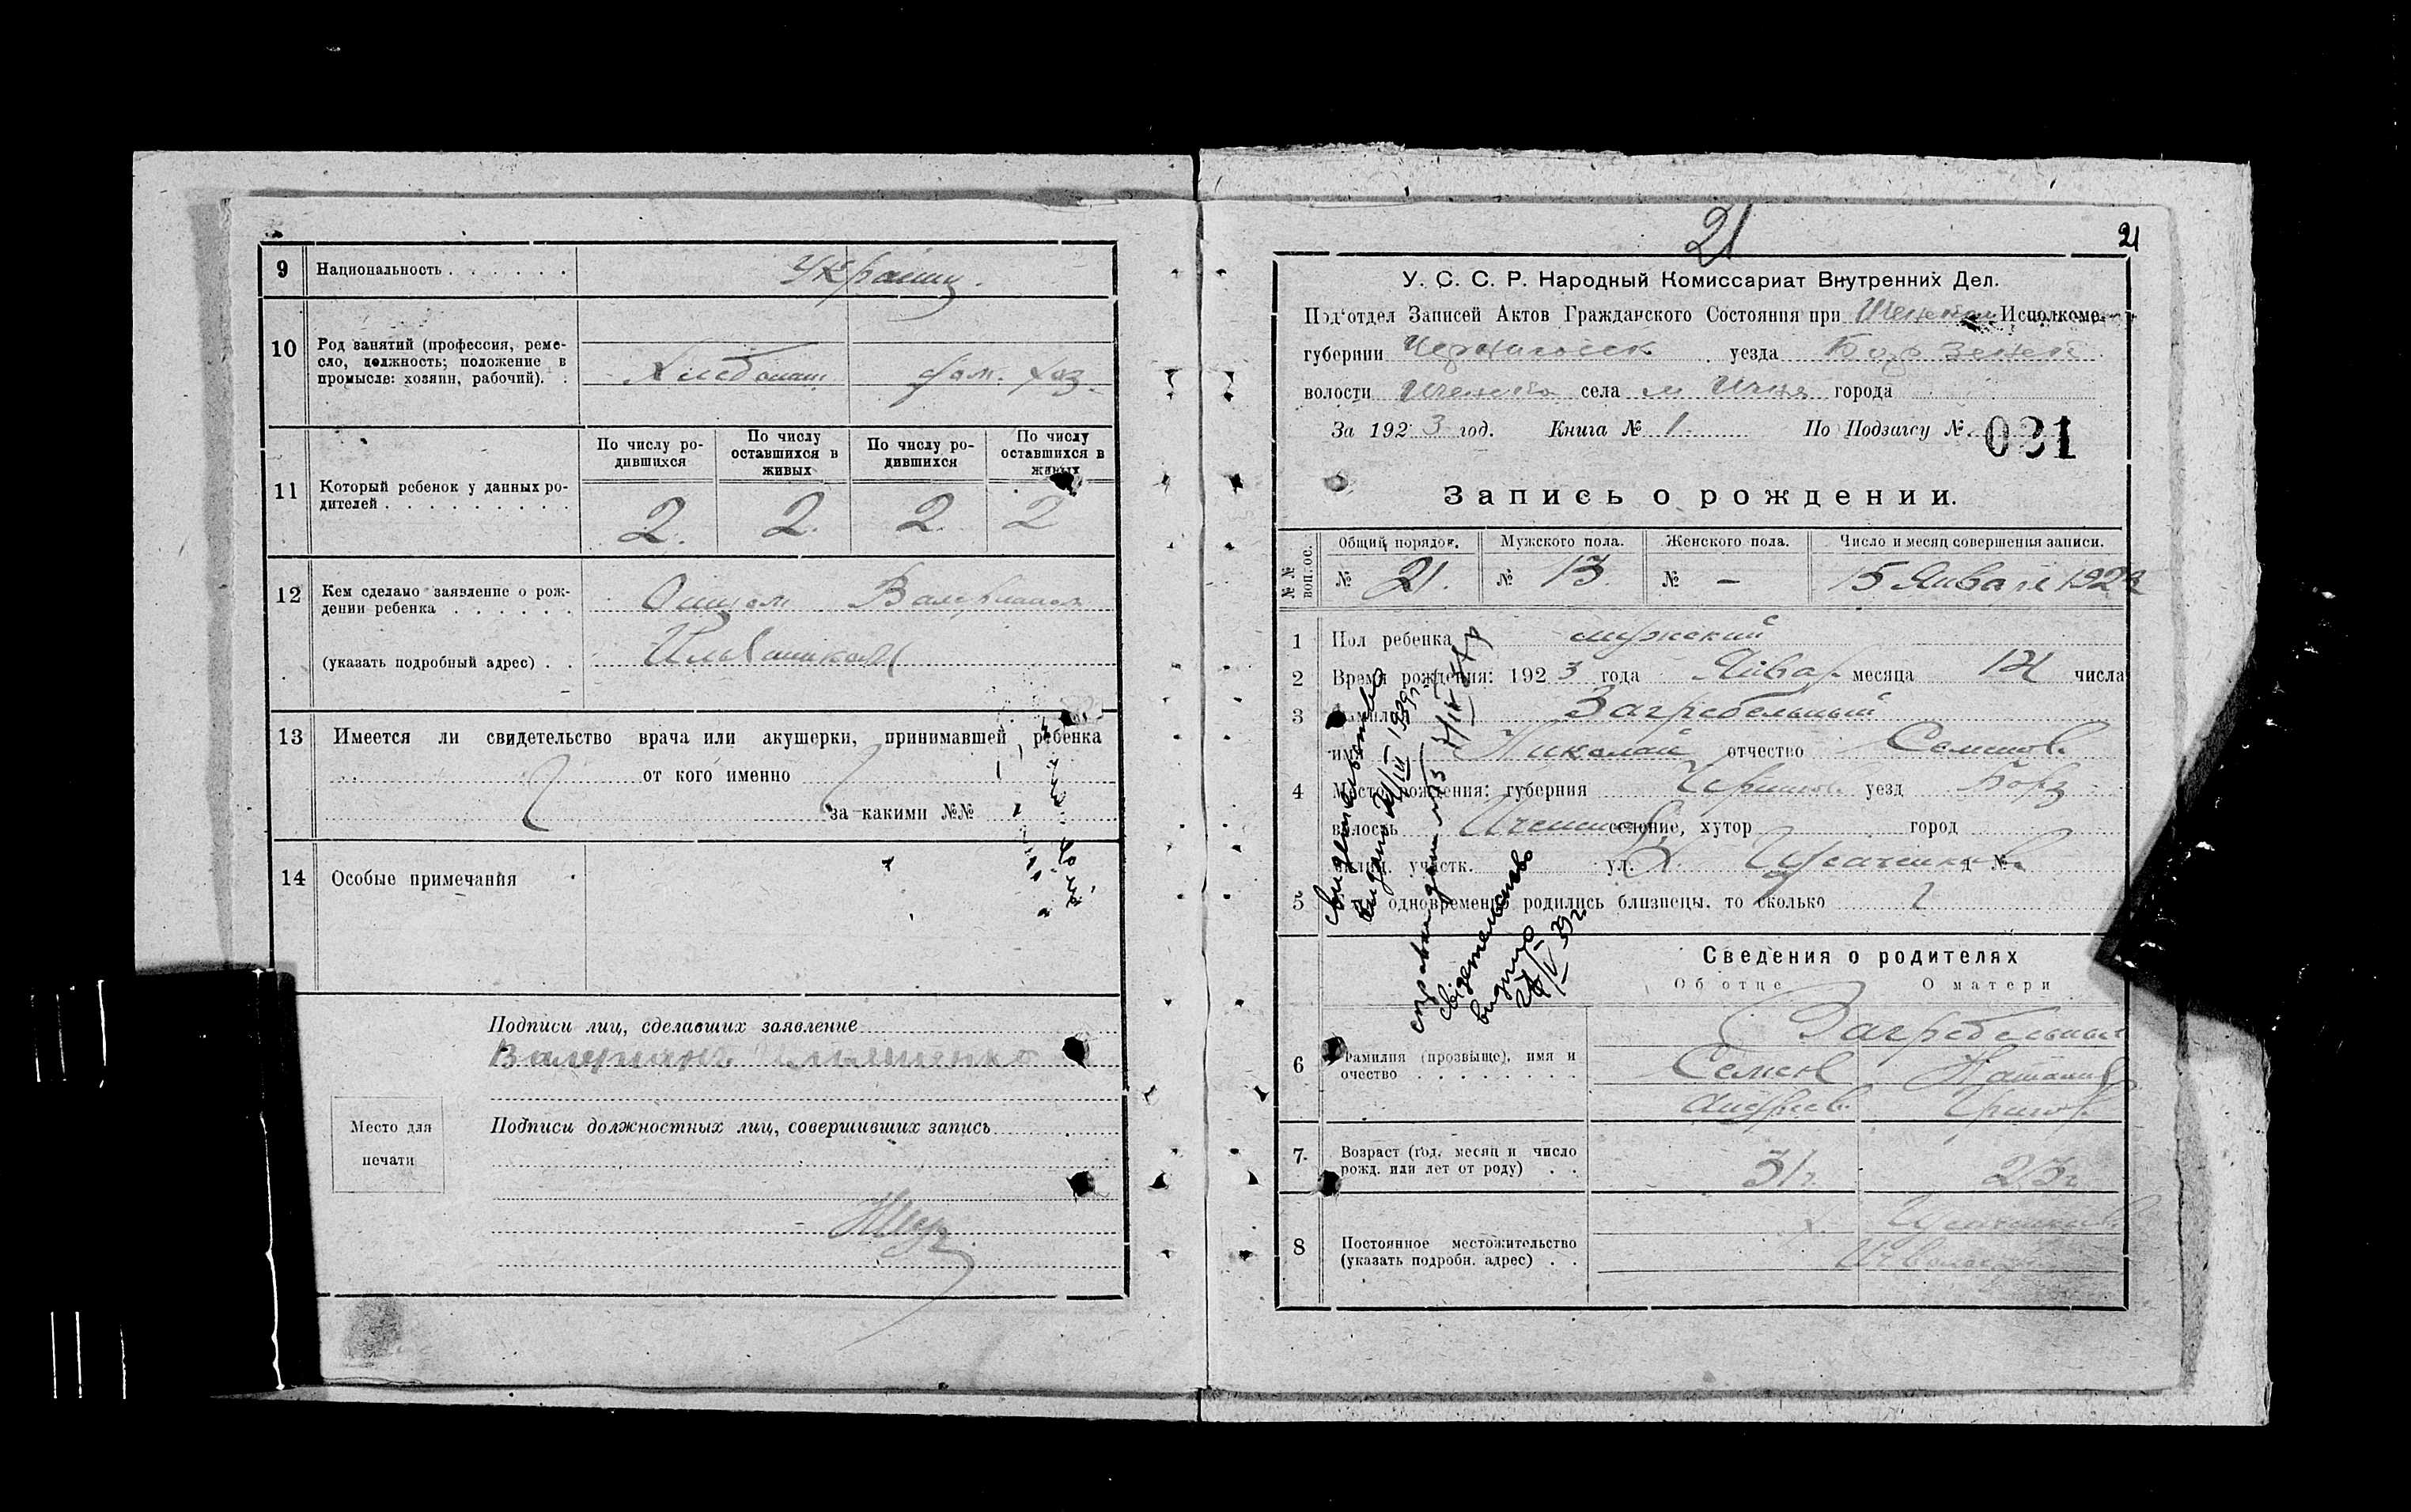 9 Национальность . . . . . . Украинц.
10 Род занятий (профессия, реме-
сло, должность; положение в
промысле: хозяин, рабочий). . Хлебопаш дом. хоз.
По числу ро-
дившихся
По числу
оставшихся в
живых
По числу ро-
дившихся
По числу
оставшихся в
живых
11 Который ребенок у данных ро-
дителей . . . . . . . . . 2. 2. 2 2
12 Кем сделано заявление о рож-
дении ребенка . . . . . . Отцом Валерианом
(указать подробный адрес) . .
13 Имеется ли свидетельство врача или акушерки, принимавшей ребенка
от кого именно
за какими №№
14 Особые примечания
Подписи лиц, сделавших заявление
Валериан Ильяшенко
Место для
печати
Подписи должностных лиц, совершивших запись
21
21
У. С. С. Р. Народный Комиссариат Внутренних Дел.
Под'отдел Записей Актов Гражданского Состояния при Исполкоме
губернии Черниговск уезда Борзенск
волости села м Ичня города
За 192 3 год. Книга № 1 По Подзагсу № 021
Запись о рождении.
№№ воп.ос.
Общий порядок. Мужского пола. Женского пола. Число и месяц совершения записи.
№ 21. № 13 № – 15 Января 1923
1 Пол ребенка мужский
2 Время рождения: 192 3 года Январ. месяца 14 числа
3 Фамилия Загребельный
имя Николай отчество Семенов.
4 Место рождения: губерния Чернигов. уезд Борз
волость Иченской селение, хутор город
милиц. участк. ул. х. д №
5 одновременно родились близнецы, то сколько
свидетельство
выдано 21/III 1939 г.
справка дана
свідетельство
видано
28/V 39 г.
Сведения о родителях
Об отце О матери
6 Фамилия (прозвище), имя и
очество . . . . . . . .
Загребельные
Семен Наталия
Андреев. Григор.
7. Возраст (год, месяц и число
рожд. или лет от роду) . . 31г. 23г
8 Постоянное местожительство
(указать подробн. адрес) . . х.